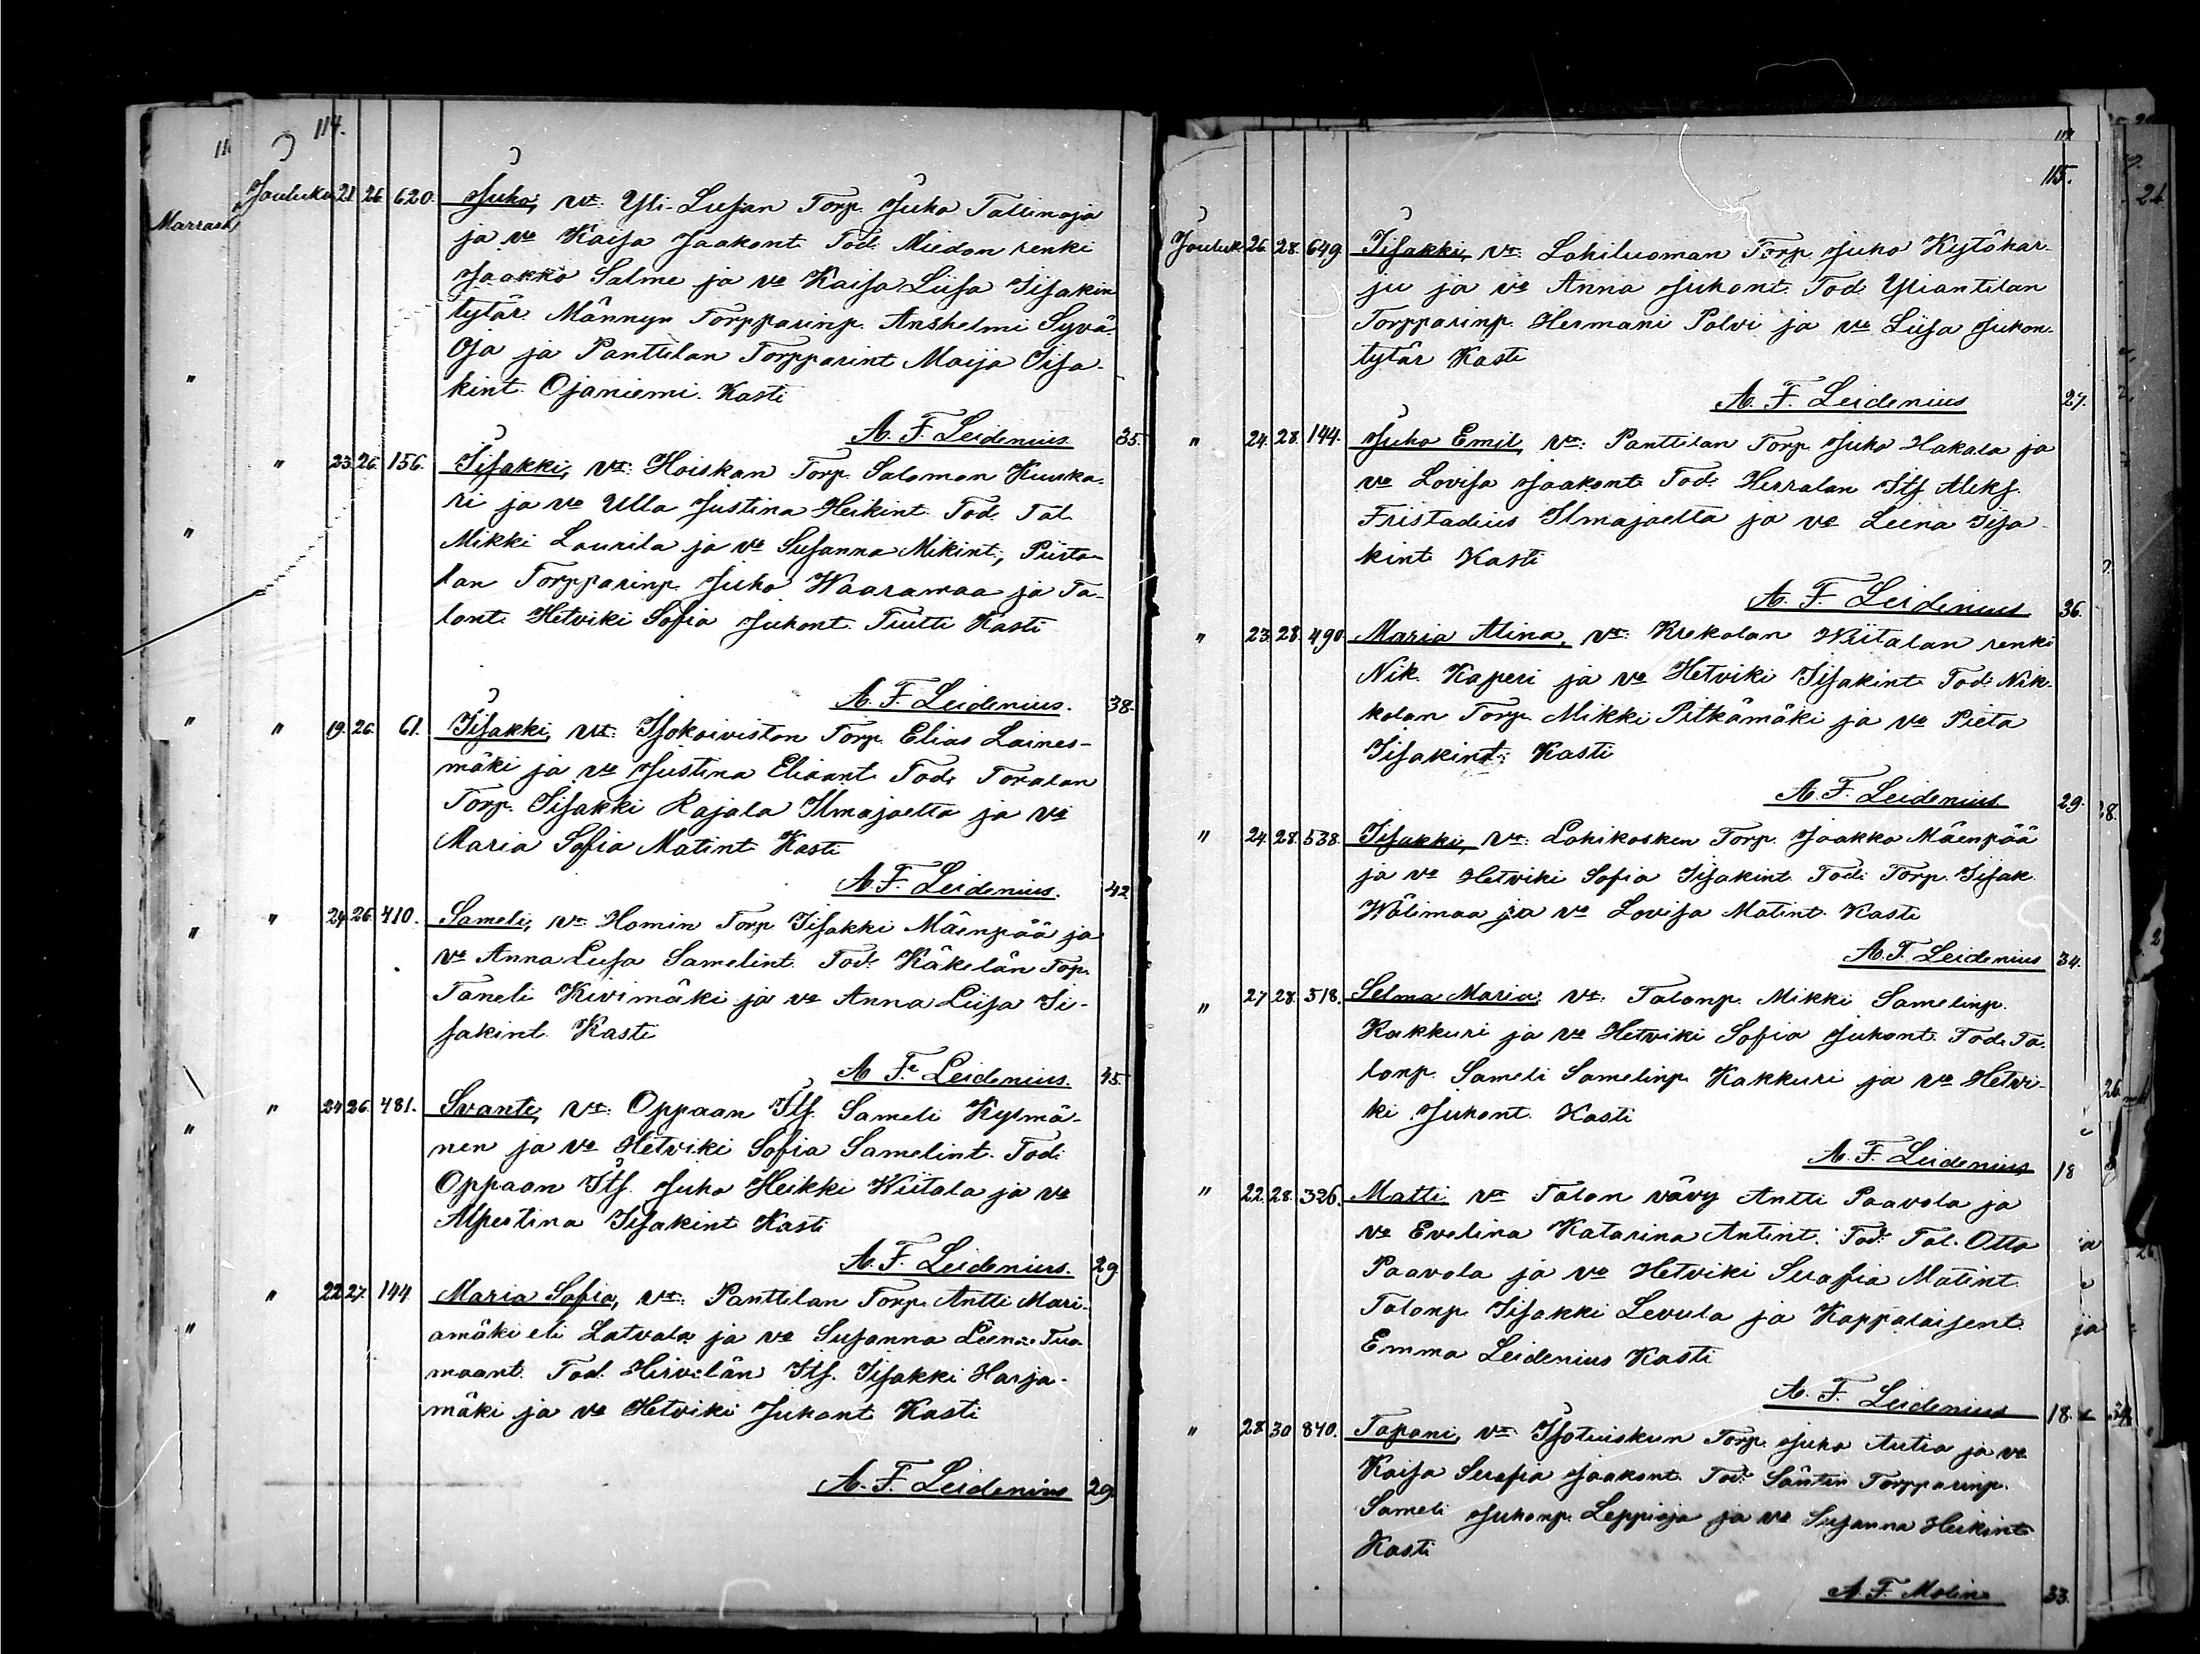 114.
Jouluku 21 26 620. Juho, vt: Yli-Lusan Torp. Juho Tallinoja
ja vo Kaisa Jaakont. Tod. Miedon renki
Jaakko Salme ja vo Kaisa Liisa Iisakin
tytär. Männyn Torpparinp. Anshelmi Syvä-
oja ja Panttilan Torpparint Maija Iisa-
kint. Ojaniemi. Kasti
A. F. Leidenius 35.
" 23. 26. 156. Iisakki, vt: Hoiskan Torp. Salomon Kuuka-
ri ja vo Ulla Justina Heikint. Tod. Tal.
Mikki Laurila ja vo Susanna Mikint., Piirto-
lan Torpparinp. Juho Waaramaa ja Ta-
lont. Hetviki Sofia Juhont. Tuitti Kasti
A. F. Leidenius. 38.
" 19. 26. 61. Iisakki, vt: Isokoiviston Torp. Elias Laines-
mäki ja vo Justina Eliaant. Tod: Toralan
Torp. Iisakki Rajala Ilmajoelta ja vo
Maria Sofia Matint Kasti
A. F. Leidenius. 42
" 24. 26. 410. Sameli, vt: Homin Torp Iisakki Mäenpää ja
vo Anna Liisa Samelint. Tod: Käkelän Tor.
Taneli Kivimäki ja vo Anna Liisa Ii-
sakint. Kasti
A. F. Leidenius. 45
" 24 26. 481. Svante, vt: Oppaan Its. Sameli Kylmä-
nen ja vo Hetviki Sofia Samelint. Tod:
Oppaan Its. Juho Heikki Wiitala ja vo
Alpertina Iisakint Kasti
A. F. Leidenius. 29
" 22 27. 144 Maria Sofia, vt: Panttilan Torp. Antti Mari-
amäki eli Latvala ja vo Susanna Leena Tuo-
maant. Tod. Hirvelän Its. Iisakki Harja-
mäki ja vo Hetviki Juhont Kasti
A. F. Leidenius 29.
115.
Jouluk 26. 28. 649. Iisakki, vt: Lohiluoman Torp. Juho Kytöhar-
ju ja vo Anna Juhont. Tod. Yliantilan
Torpparinp. Hermani Palvi ja vo Liisa Juhon-
tytär Kasti
A. F. Leidenius 27.
" 24. 28. 144. Juho Emil, vt: Panttilan Torp. Juho Hakala ja
vo Lovisa Jaakont. Tod. Herralan Its Aleks.
Fristadius Ilmajoelta ja vo Leena Iisa-
kint Kasti
A. F. Leidenius 36.
" 23. 28. 490 Maria Alina, vt: Krekolan Wiitalan renki
Nik. Kaperi ja vo Hetviki Iisakint. Tod: Nik-
kolan Torp. Mikki Pitkämäki ja vo Pieta
Iisakint: Kasti
A. F. Leidenius 29.
" 24. 28. 538. Iisakki, vt: Lohikosken Torp. Jaakko Mäenpää
ja vo Hetviki Sofia Iisakint. Tod: Torp. Iisak
Wälimaa ja vo Lovisa Matint. Kasti
A. F. Leidenius 34.
" 27 28. 518. Selma Maria, vt. Talonp. Mikki Samelinp.
Kakkuri ja vo Hetviki Sofia Juhont. Tod. Ta-
lonp. Sameli Samelinp. Kakkuri ja vo Hetvi-
ki Juhont. Kasti
A. F. Leidenius 18
" 22. 28. 326. Matti vt Talon vävy Antti Paavola ja
vo Evelina Katarina Antint. Tod: Tal. Otto
Paavola ja vo Hetviki Serafia Matint.
Talonp. Iisakki Levula ja Kappalaisent.
Emma Leidenius Kasti
A. F. Leidenius 18.
" 28. 30 840. Tapani, vt: Isotuiskun Torp. Juho Autio ja vo
Kaisa Serafia Jaakont. Tod: Säntin Torpparinp.
Sameli Juhonp. Leppioja ja vo Susanna Heikint.
Kasti
A. F. Molin 33.